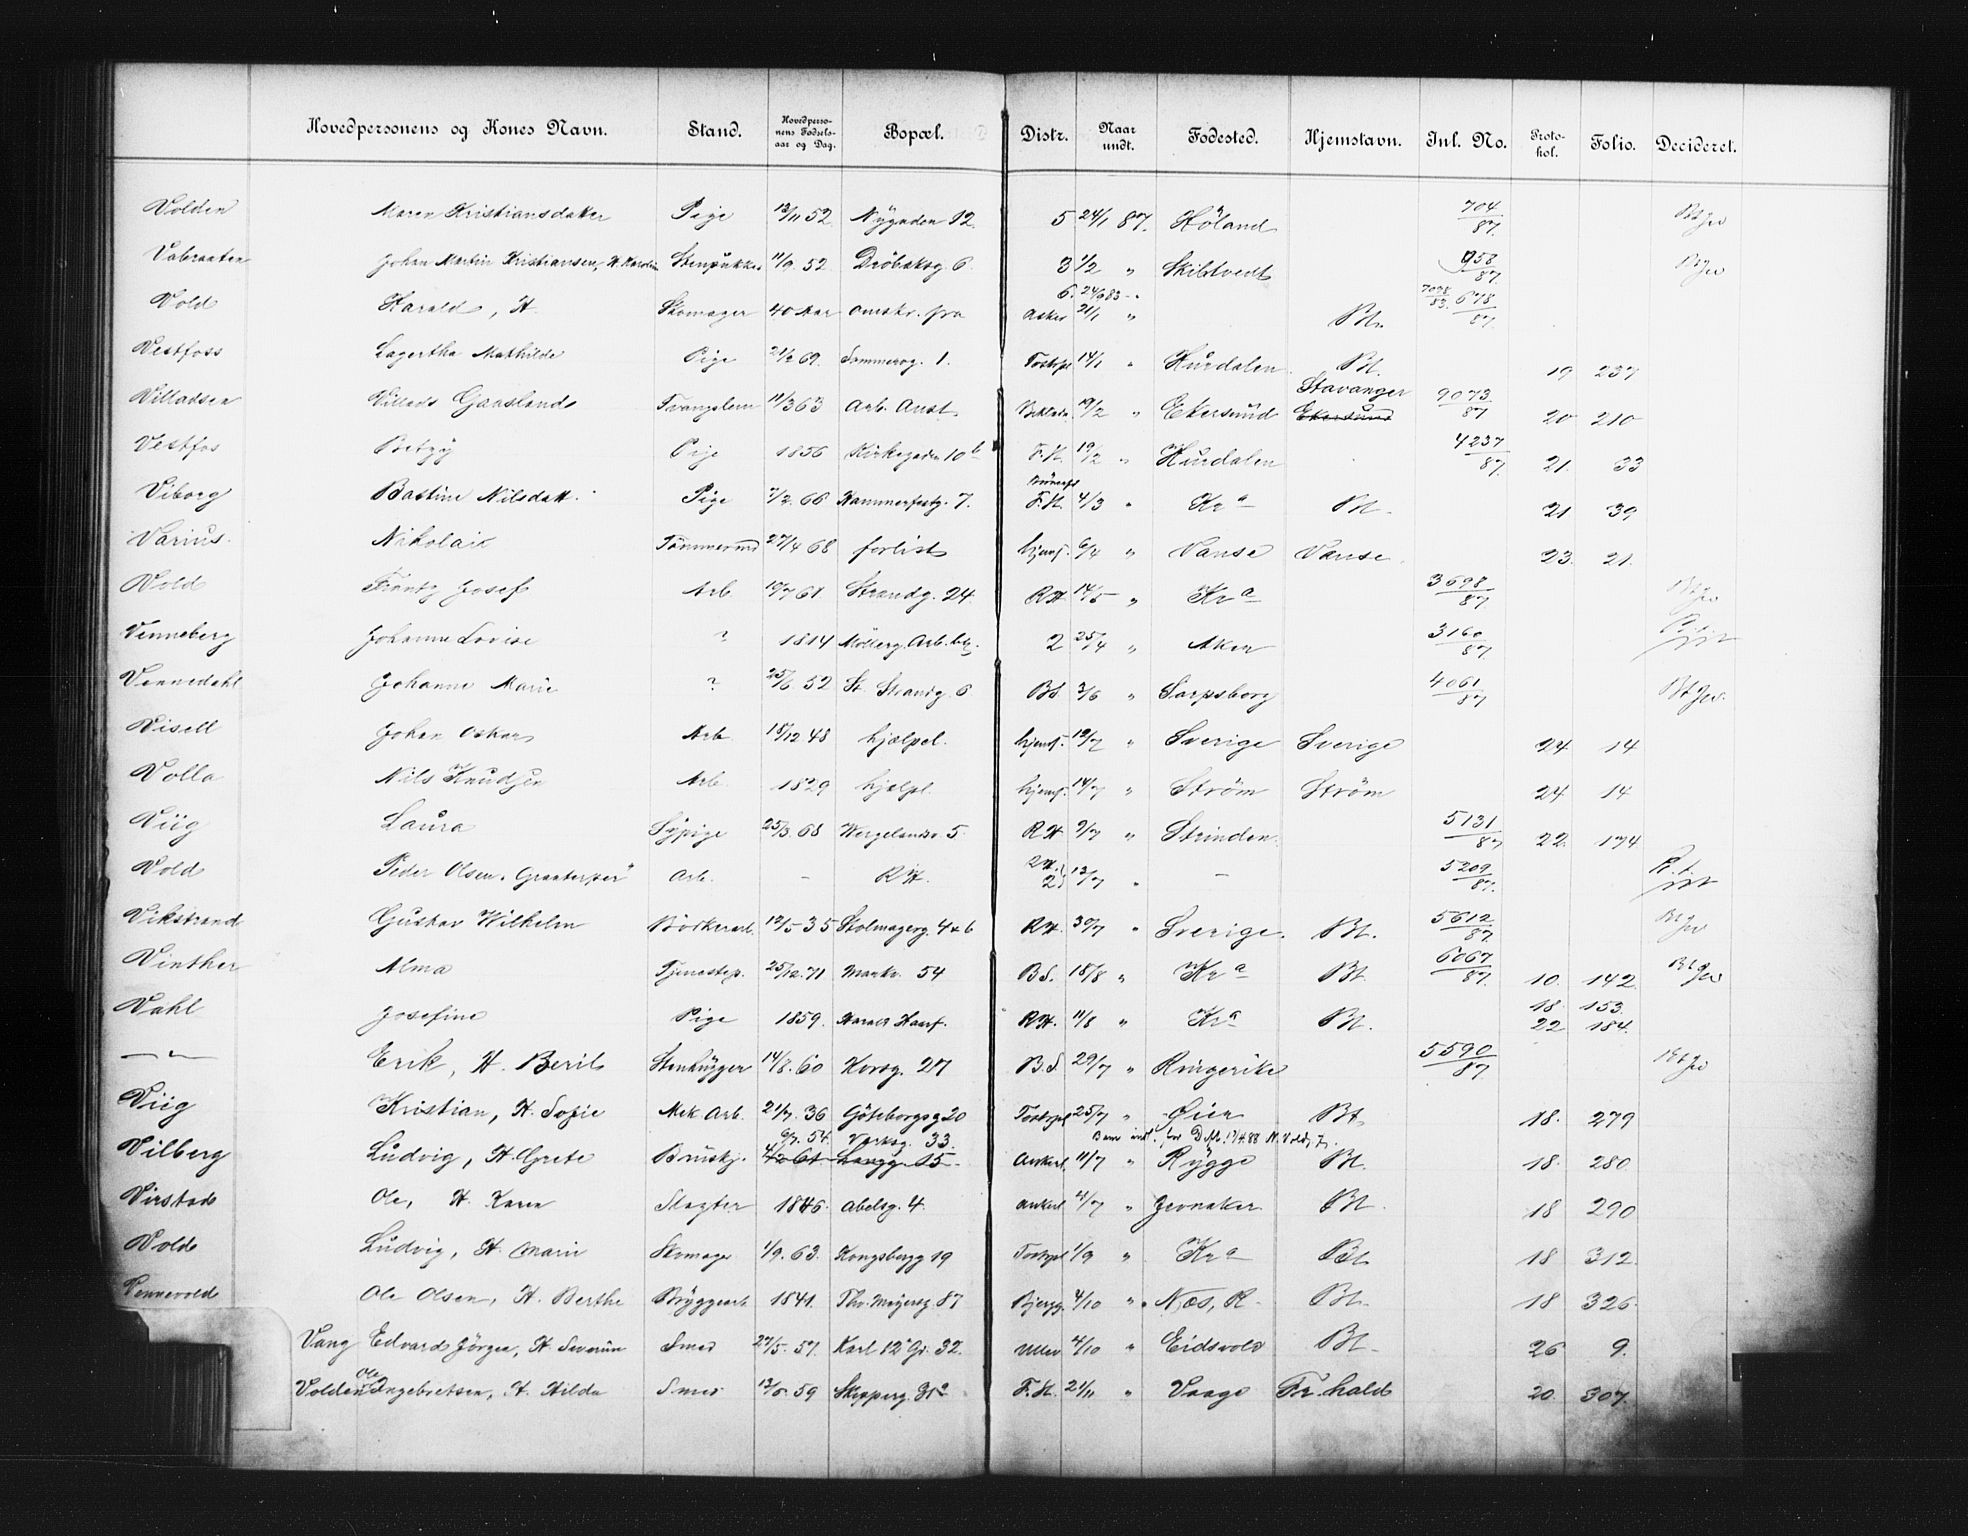 Hovedpersonens og Kones Navn. Stand. Hovedperso-nens Fødsels-aar og Dag. Bopæl. Distr. Naar undt. Fødested. Hjemstavn. Inl. No. Proto-kol. Folio. Decideret.
Volden Maren Kristiansdatter Pige 12/11 52 Nygaden 12. 5 24/1 87. Höland 704/87.
Johan Martin Kristiansen, H. Karoline 11/9 52 Dröbaksg 6. 3 1/2 " Skibtvedt 958/87
6. 24/6 83 7098/83. 678/87.
Vold Harald, H. Skomager 40 Aar omstr. fra Asker 21/1 " Bt.
Vestfoss Lagertha Mathilde Pige 21/2 69. Sommerog. 1. Tostrpl 14/1 " Hurdalen Bt. 19 237
Stavanger
Villadsen Villads Gaaslands Tvangslem 11/3 63 Arb. Anst. 19/2 " Ekersund Ekersund 9073/87 20 210
Vestfos Betzy Pige 1856 Kirkegaden 10 b F.H. 19/2 " Hurdalen 4237/87 21. 33
Viborg Bastine Nilsdatt. Pige 7/2 66 Hammerfestg. 7. F.H. 4/3 " Kr a Bt. 21 39
Varius. Nikolai 27/4 68 forlist hjemf. 6/4 " Vanse Vanse 23. 21.
Vold Frantz Josef Arb. 10/7 61 Strandg. 24. RH. 14/5 " Kr a 3698/87
Venneberg Johanne Lovise ? 1814 Möllerg. Arb. 2 25/4 " Aker 3160/87
Vennedahl Johanne Marie ? 25/6 52 St. Strandg. 6 BS 3/6 " Sarpsborg 4061/87
Visell Johan Oskar Arb. 18/12 48 hjælpel. hjemf. 12/7 " Sverige Sverige 24 14
Volla Nils Knudsen Arb. 1829 hjælpl. hjemf. 14/7 " Ström Ström 24 14
Viig Laura Sypige 25/3 68 Wergelandsv. 5. RH 9/7 " Strinden. 5131/87 22. 174
Vold Peder Olsen Arb. - RH. 2 12/7 " - 5209/87.
Vikstrand Gustav Wilhelm Bödkerarb. 12/5 35 Stolmagerg. 4 & 6 RH. 30/7 " Sverige. Bt. 5612/87
Vinther Alma Tjenestep. 25/12. 71 Markv. 54 B.S. 18/8 " Kr a Bt. 6067/87. 10. 142
18. 153.
Vahl Josefine Pige 1859. RH. 11/8 " Kr a Bt. 22 184.
— " — Erik, H. Beril Stenhugger 14/8. 60 Korsg. 27 B.S. 29/7 " Ringerike 5590/87
Viig Kristian, H. Sofie Mek Arb. 21/7. 36 Göteborgsg 20 Tostrpl 25/7 " Øier Bt. 18. 279
54. Verksg. 33.
Vilberg Ludvig, H. Grete 61 Langg. 15. Ankerl. 11/7 " Rygge Bt. 18. 280
Virstad Ole, H. Karen Slagter 1846. Abelsg. 4. Ankerl 21/7 " Jevnaker Bt. 18 290
Vold Ludvig, H. Marie Skomager 1/9. 63. Kongsbergg 19 Tostrpl 1/9 " Kr a Bt. 18 312
Vennevold Ole Olsen, H. Berthe Bryggearb 1841. Thv. Meyersg. 87 4/10 " Næs, R. Bt. 18 326
Vang Edvard Jörgen, H. Severine Smed 27/5. 57. Karl 12 Gd. 32. Ullev 4/10 " Eidsvold Bt. 26 9.
Ole
Volden Ingebretsen, H. Hilda Smed 13/5. 59 Skipperg. 31 a F.H. 21/11 " Vaage Fr. hald 20. 307.